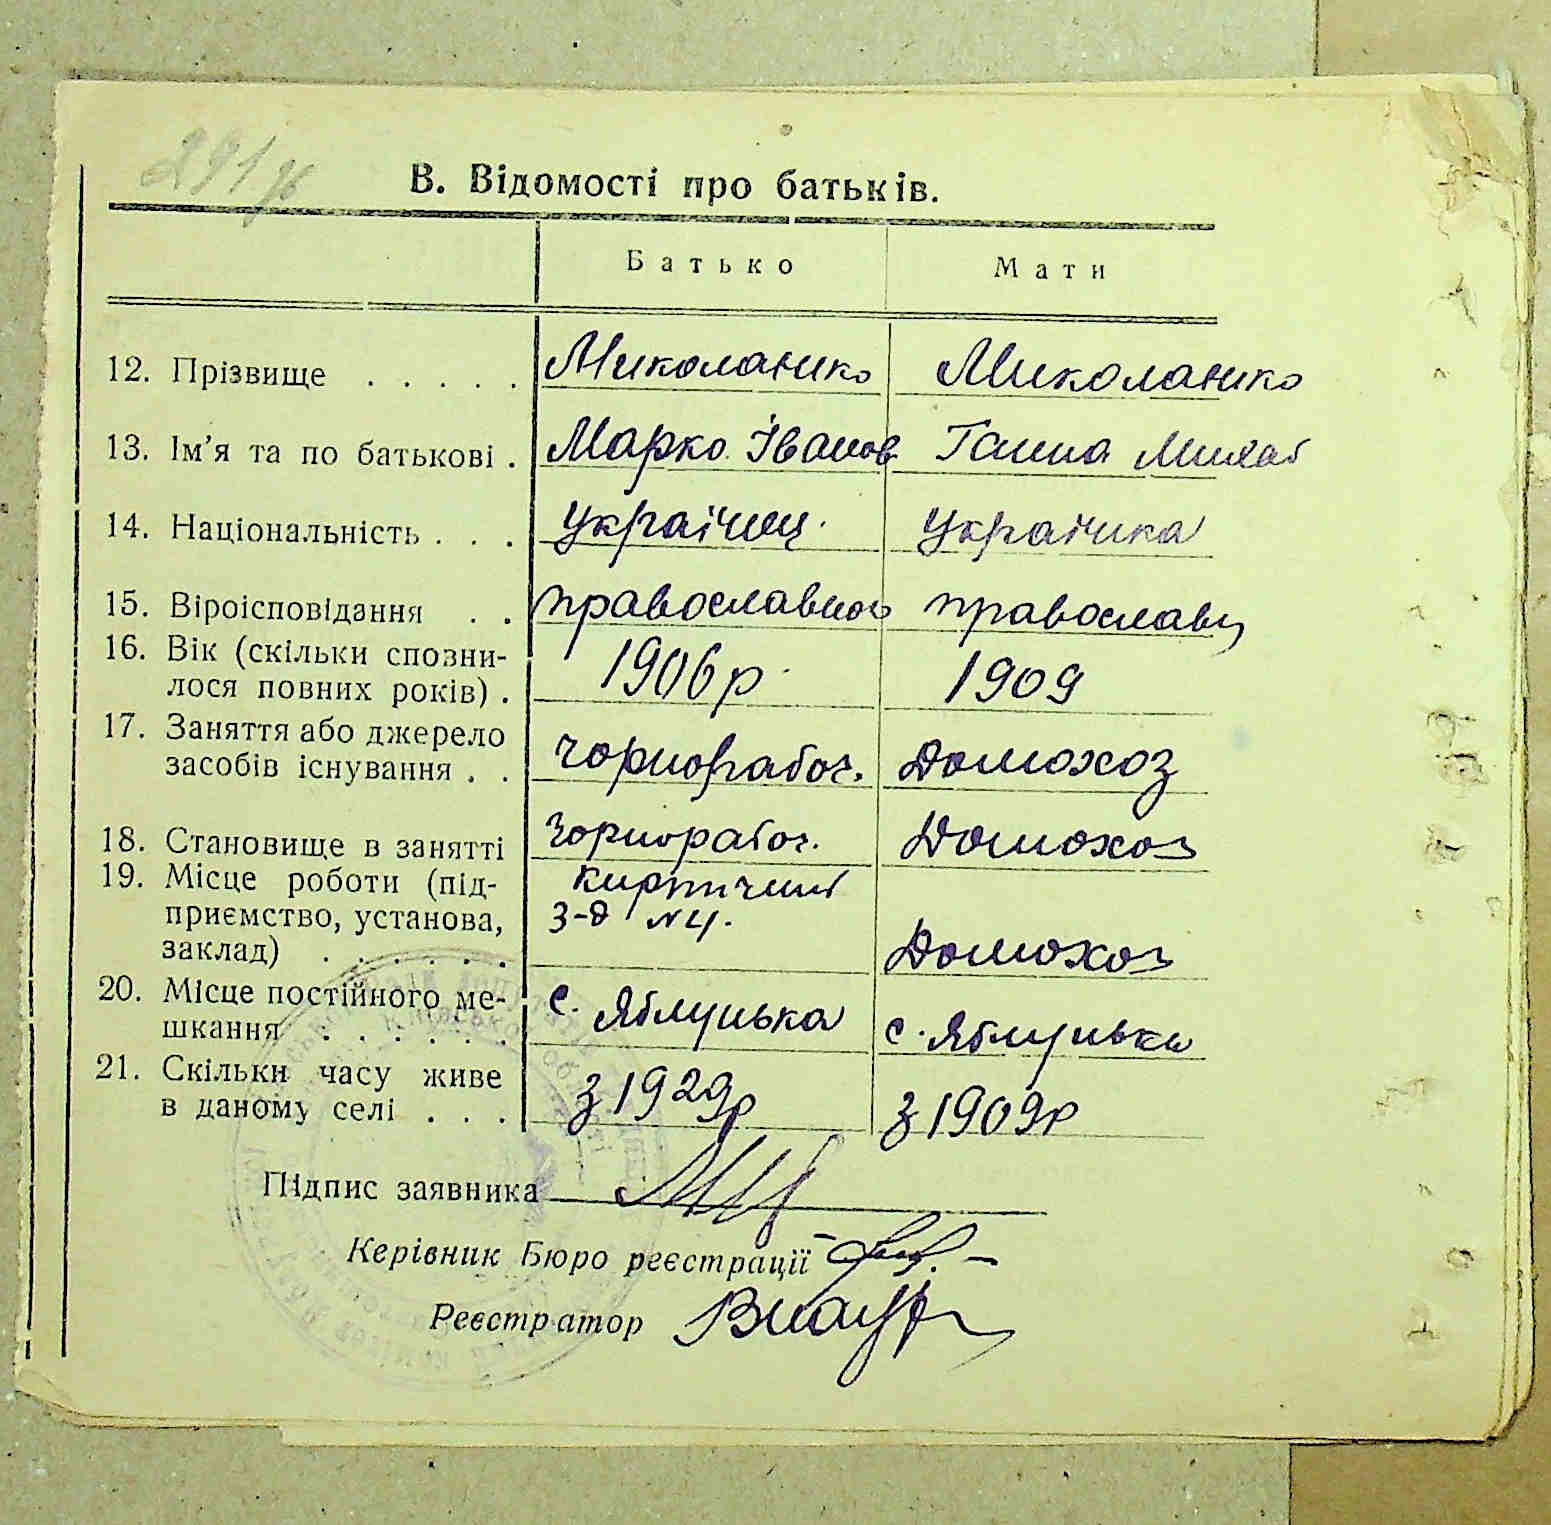 291
В. Відомості про батьків.
Батько Мати
12. Прізвище . . . . . Миколаенко Миколаенко
13. Ім'я та по батькові . Марко Іванов Ганна Михай
14. Національність . . . Українец. Українка
15. Віроісповідання . . православного православн
16. Вік (скільки спозни-
лося повних років) . 1906 р 1909
17. Заняття або джерело
засобів існування . . Чорнорабоч. Домохоз
18. Становище в занятті Чорнорабоч. Домохоз
19. Місце роботи (під- кирпичний
приємство, установа, з-д №4.
заклад) . . . . . . Домохоз
20. Місце постійного ме- с. Яблунька с. Яблунька
шкання . . . . . .
21. Скільки часу живе
в даному селі . . . з 1929р з 1909р
Підпис заявника
Керівник Бюро реєстрації
Реєстратор